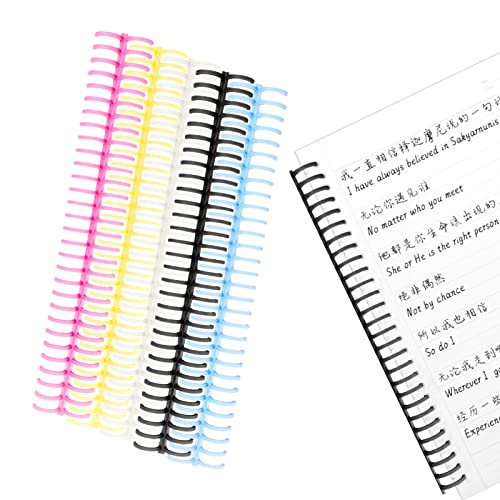 我一直相信释迦摩尼说的一句
I have always believed in Sakyamunis
无论你遇见谁
No matter who you meet
他都是你生命该出现的
She or He is the right person
绝非偶然
Not by chance
所以我也相信
So do I
无论我走到哪
Wherever I go
经历一些
Experien